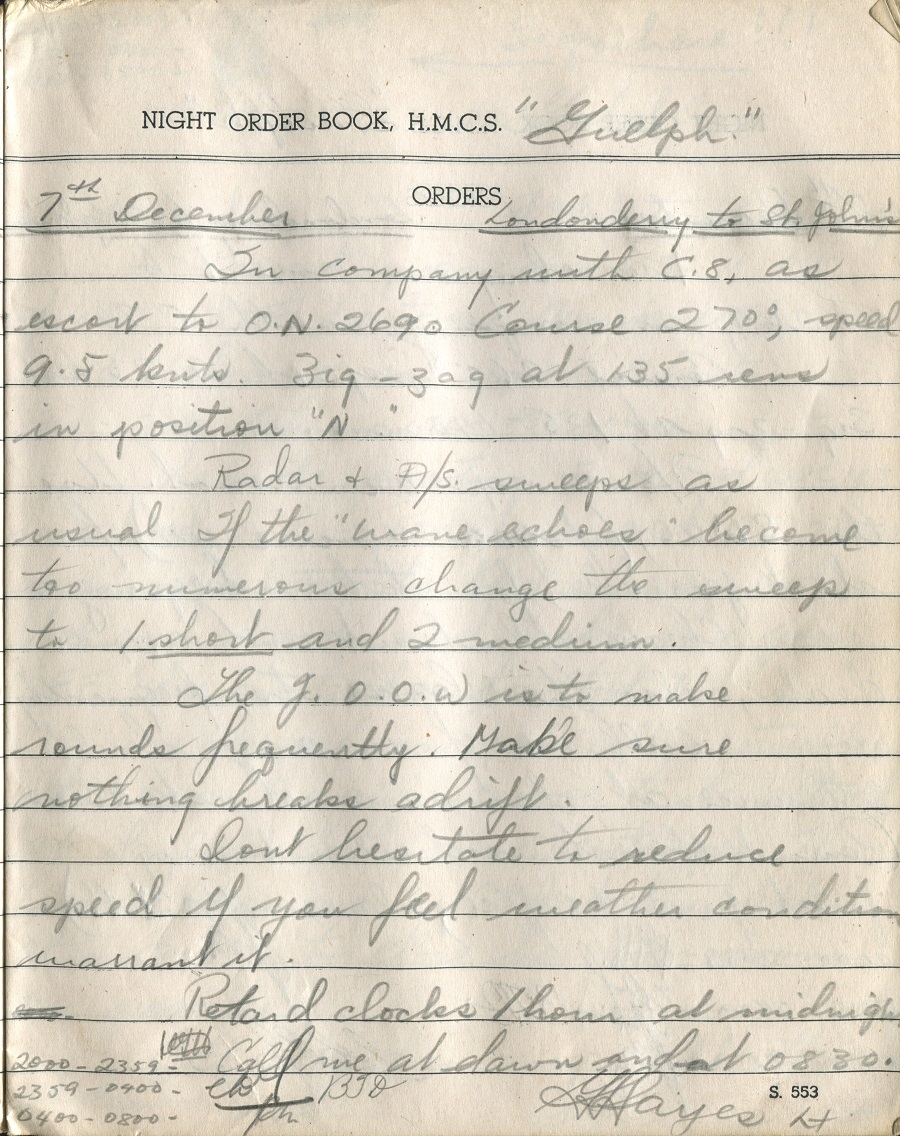 NIGHT ORDER BOOK, H.M.C.S. "Guelph."
ORDERS
7th December Londonderry to St. John's
In company with C.8, as
escort to O.N. 269. Course 270°, speed
9.5 knts. Zig-zag at 135 revs
in position "N"
Radar & A/S. sweeps as
usual. If the "wave echoes" become
too numerous change the sweep
to 1 short and 2 medium.
The J.O.O.W is to make
rounds frequently. Make sure
nothing breaks adrift.
Dont hesitate to reduce
speed if you feel weather condition
warrant it.
Retard clocks 1 hour at midnigh
2000-2359- Call me at dawn and at 0830.
2359-0400-
0400-0800- Hayes Lt
S. 553